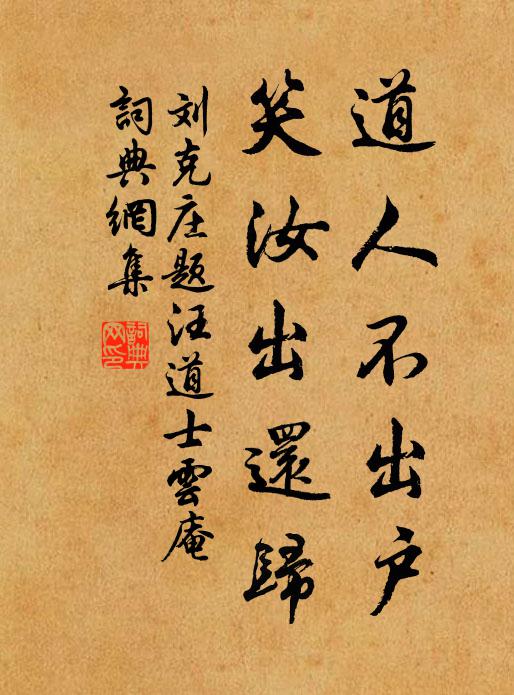 道人不出户
笑汝出還歸
刘克庄题汪道士雲庵
詞典網集
詞典网印